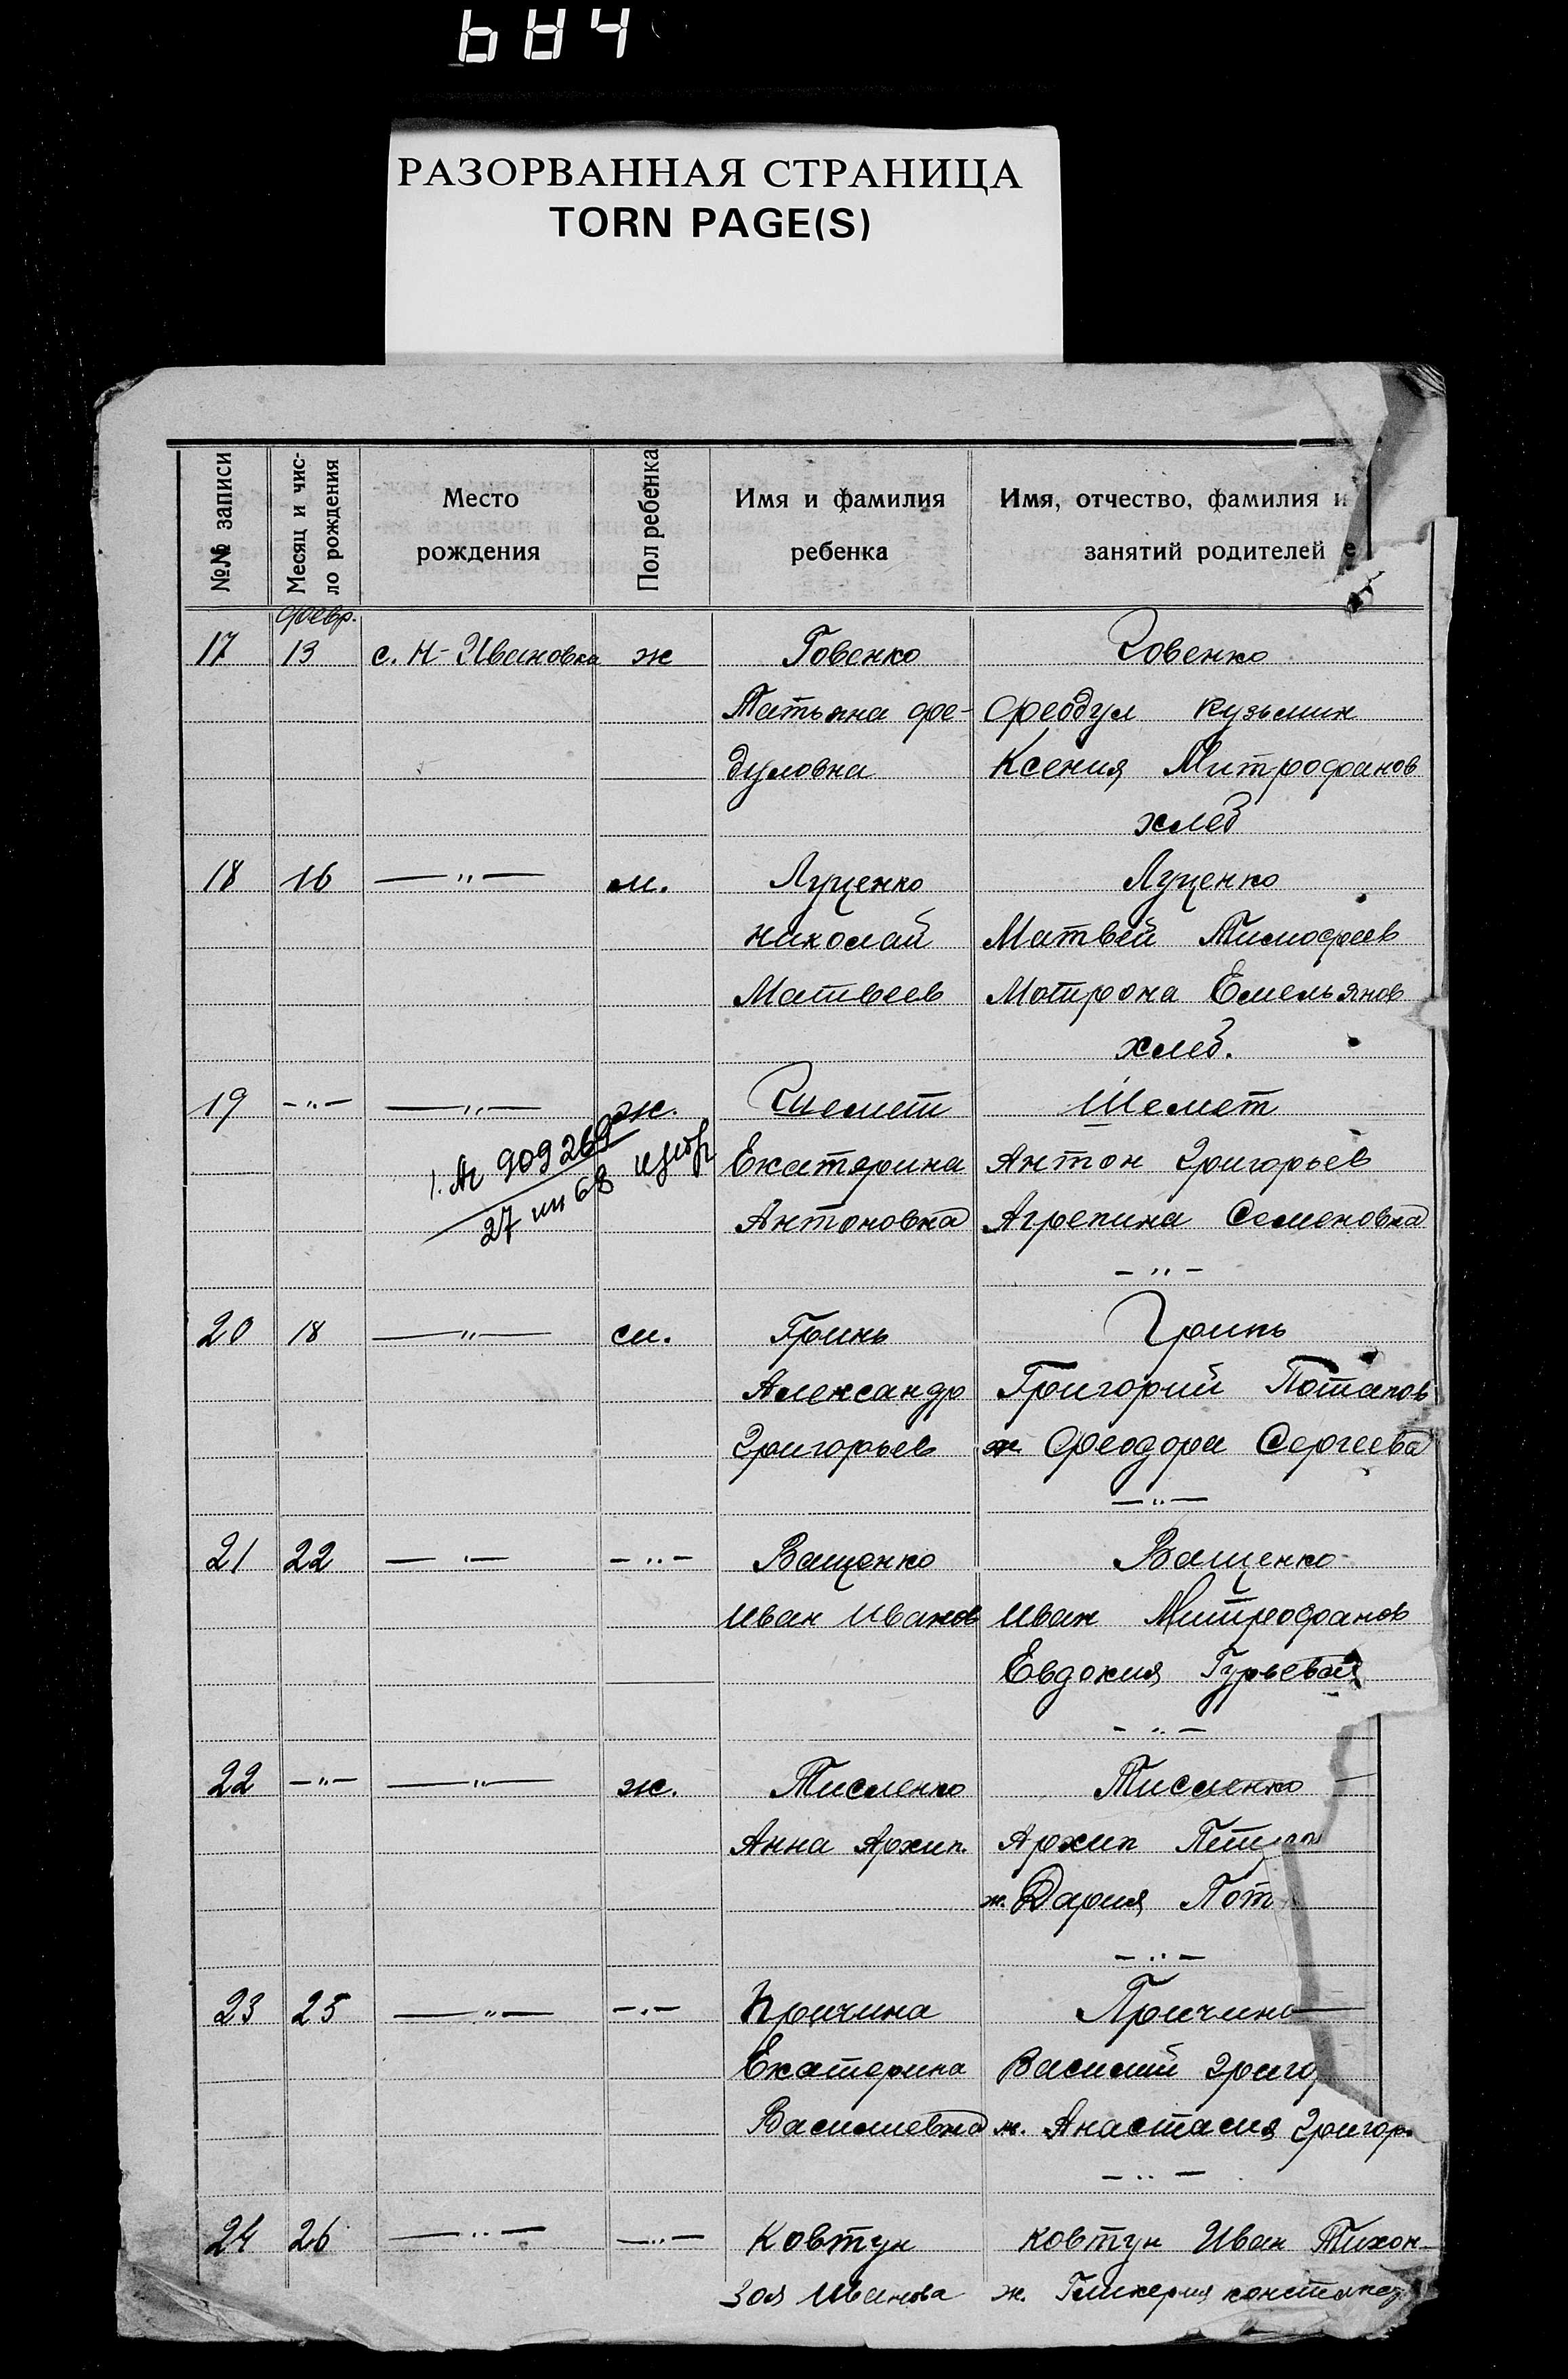 684
РАЗОРВАННАЯ СТРАНИЦА
TORN PAGE(S)
№№ записи
Месяц и чис-
ло рождения
Место
рождения
Пол ребенка
Имя и фамилия
ребенка
Имя, отчество, фамилия и
занятий родителей е
февр.
17 13 с. Н-Ивановка ж Говенко Говенко
Татьяна фе- Феодул Кузьмин
дуловна Ксения Митрофанов
хлеб
18 16 —„— м. Луценко Луценко
Николай Матвей Тимофеев
Матвеев Мотрона Емельянов
хлеб.
19 -„- —„— ж. Шемет Шемет
909269
27 68
Екатерина Антон Григорьев
Антоновна Агрепина Семеновна
-„-
20 18 —„— м. Гринь Гринь
Александр Григорий Потапов
Григорьев ж Феодора Сергеева
—„—
21 22 —„— -„- Ващенко Ващенко
Иван Иванов Иван Митрофанов
Евдокия Гурьевая
-„-
22 -„- —„— ж. Тисленко Тисленко
Анна Архип. Архип Петров
ж. Дария Пот
-„-
23 25 —„— -„- Причина Причина
Екатерина Василий Григо
Василиевна ж. Анастасия Григор.
-„-
24 26 —„— —„— Ковтун Ковтун Иван Тихон
Зоя Иванова ж. Гликерия Констант